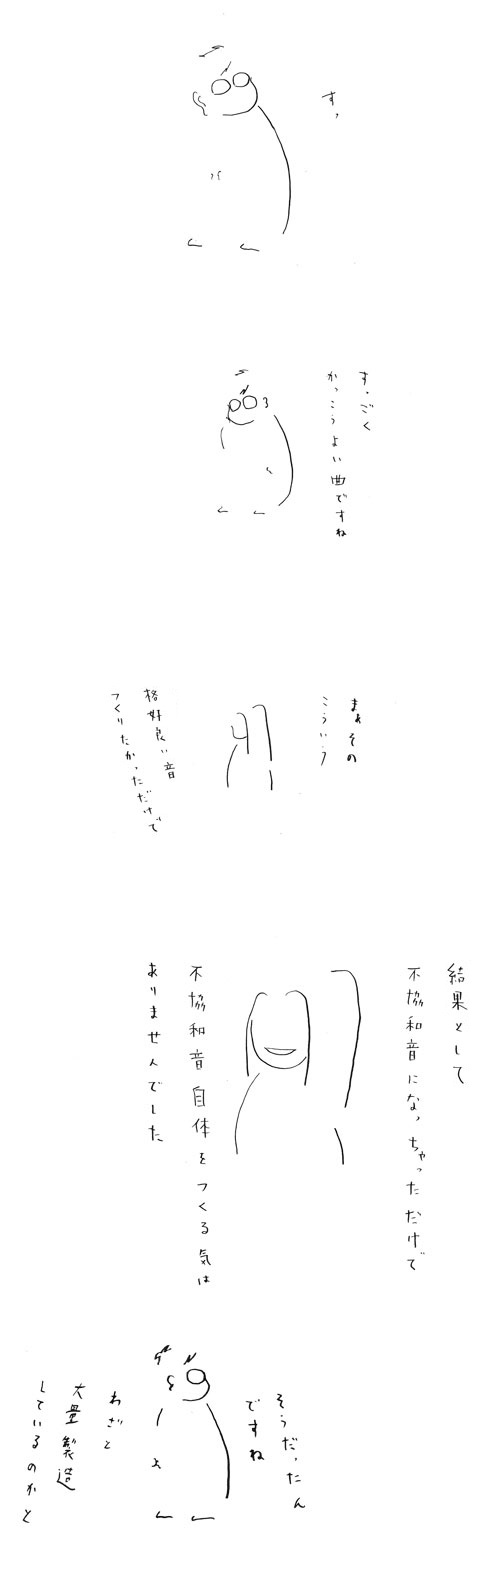 すっ
すっごく
かっこうよい曲ですね
まあその
こういう
格好良い音
つくりたかっただけで
結果として
不協和音になっちゃっただけで
不協和音自体をつくる気は
ありませんでした
そうだったん
ですね
わざと
大量製造
しているのかと